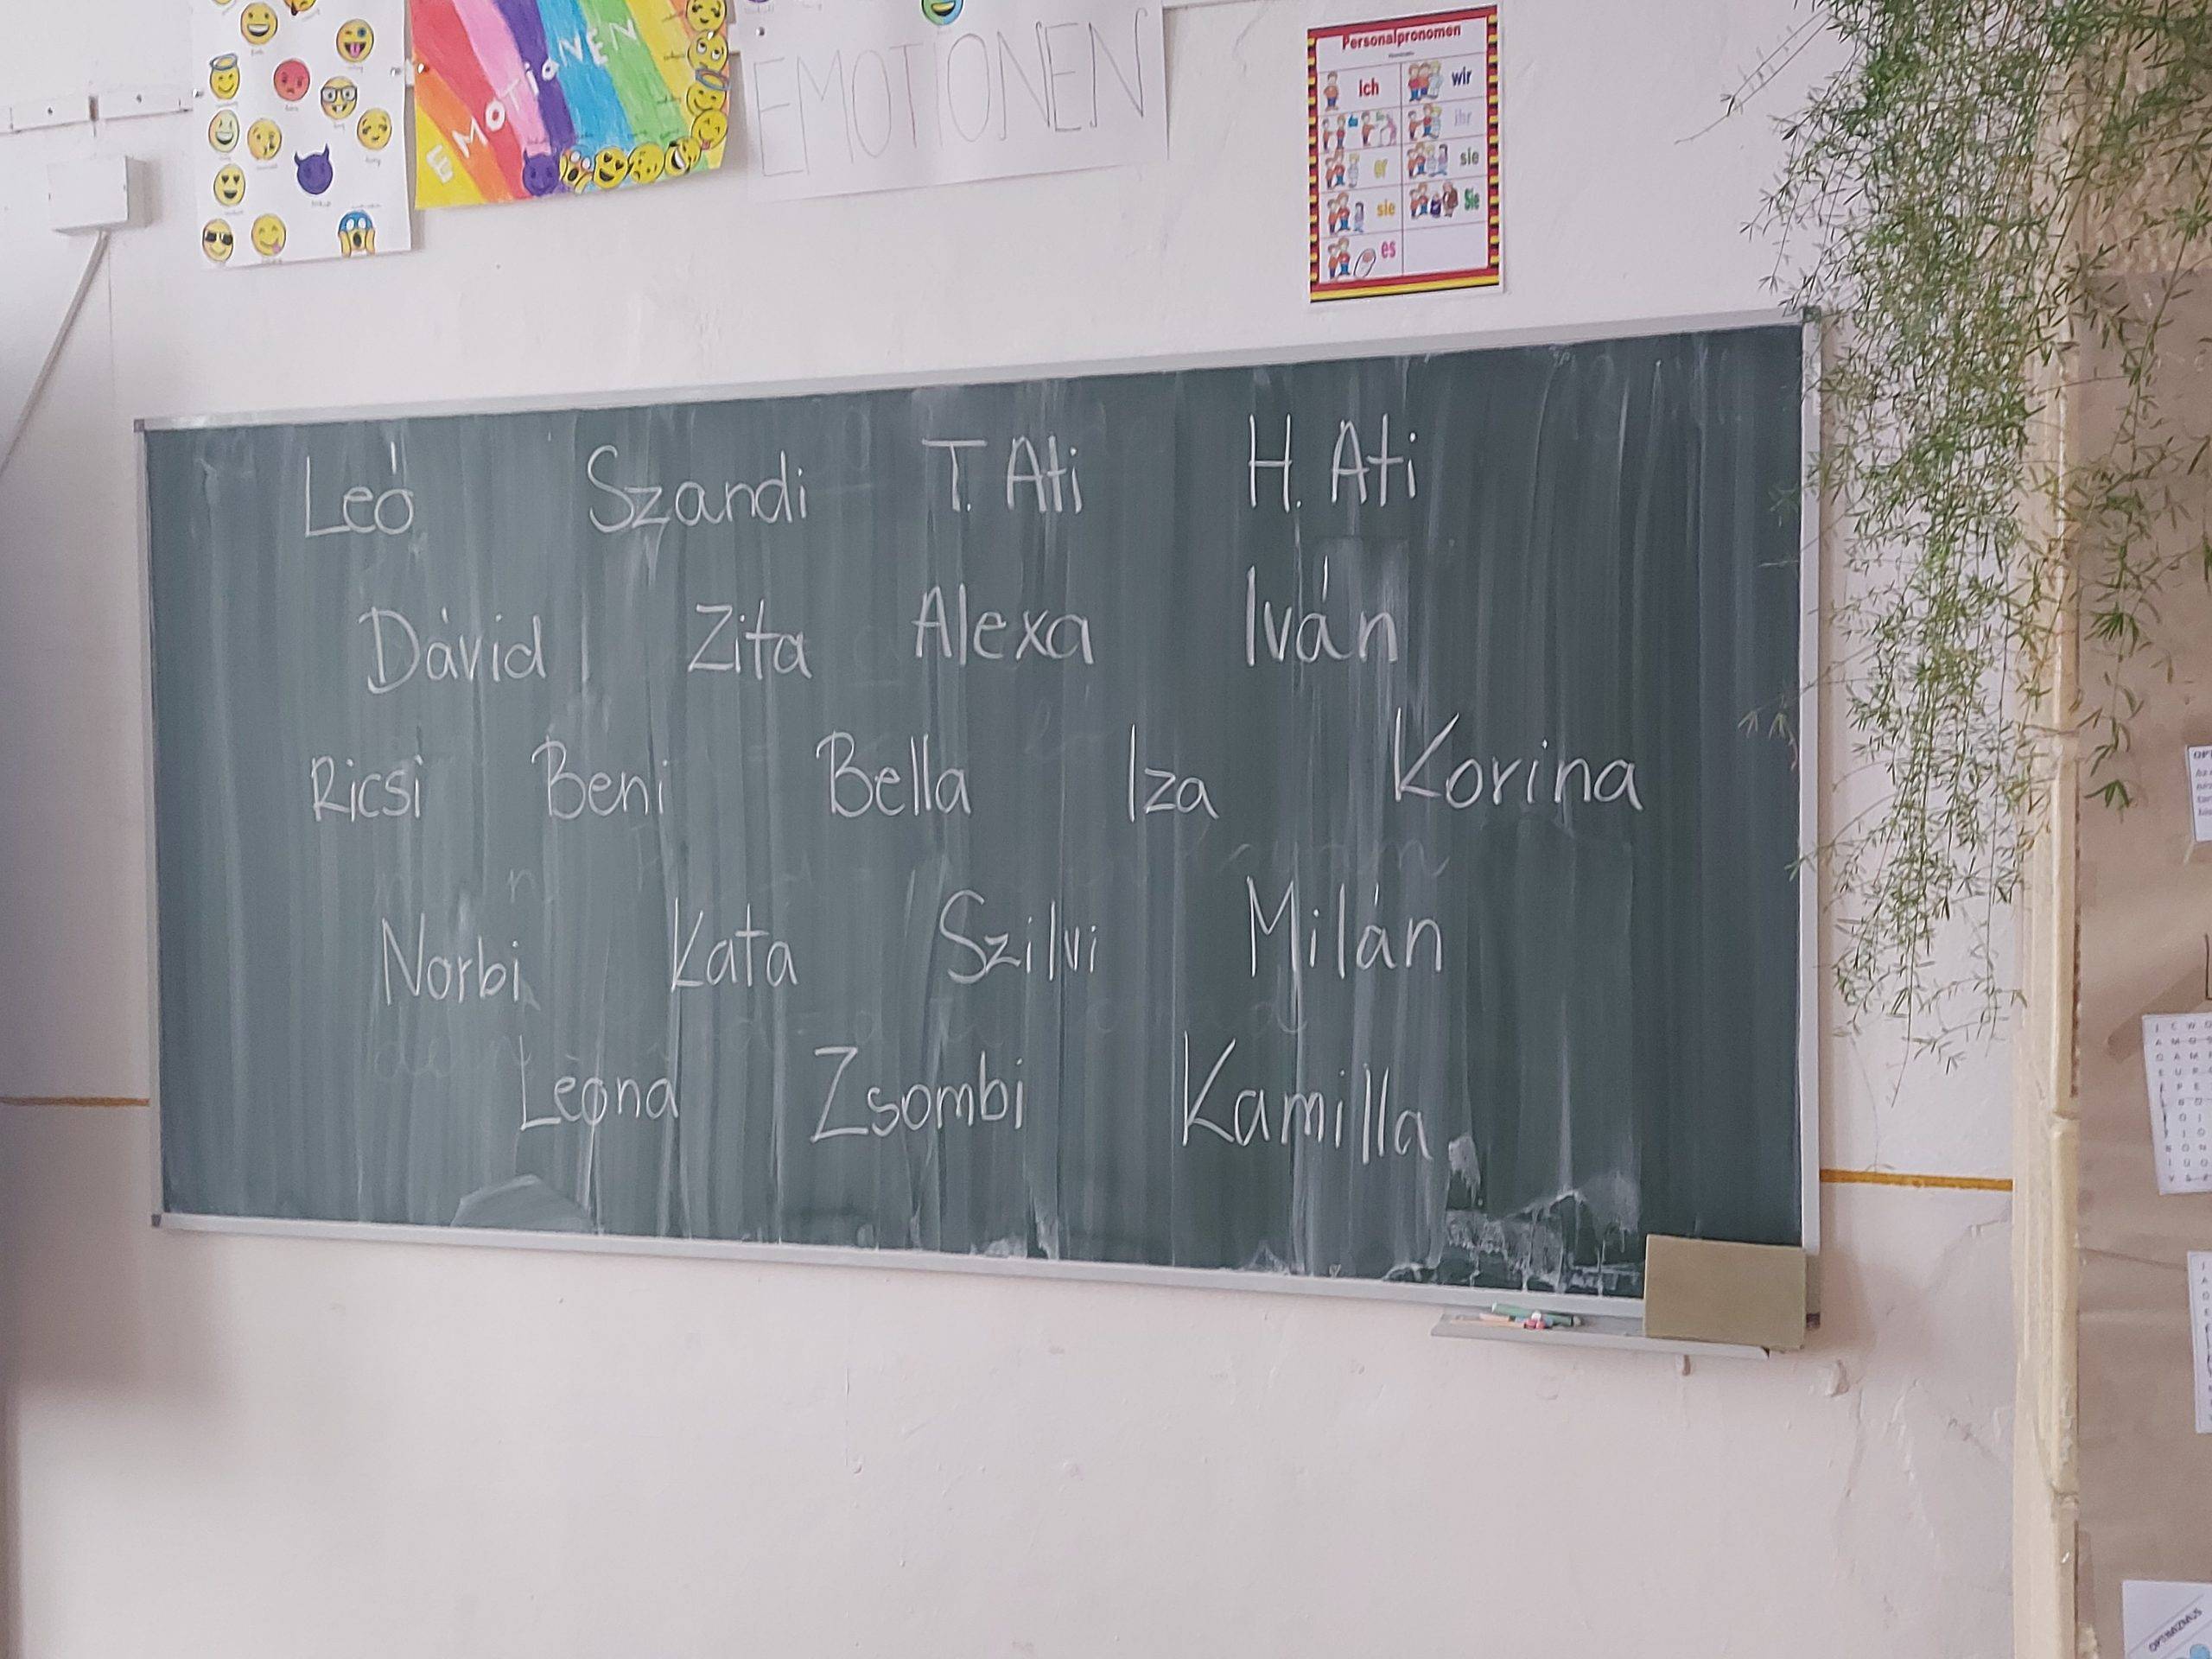 EMOTIONEN
EMOTIONEN
Personalpronomen
ich wir
ihr
er sie
sie Sie
es
Leó Szandi T. Ati H. Ati
Dávid Zita Alexa Iván
Ricsi Beni Bella Iza Korina
Norbi Kata Szilvi Milán
Leona Zsombi Kamilla
OPTIMIZMUS